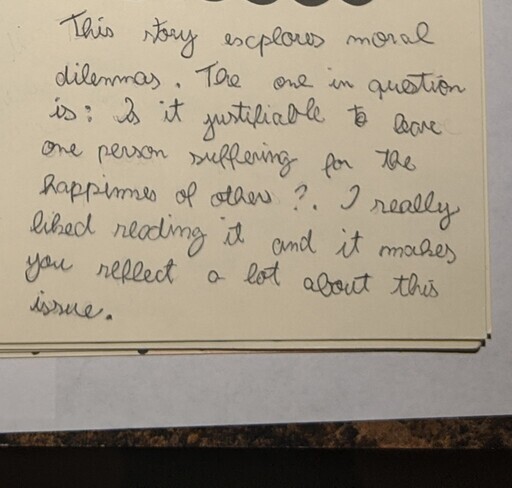 This story explores moral
dilemmas. The one in question
is: Is it justifiable to leave
one person suffering for the
happinnes of others?. I really
liked reading it and it makes
you reflect a lot about this
issue.